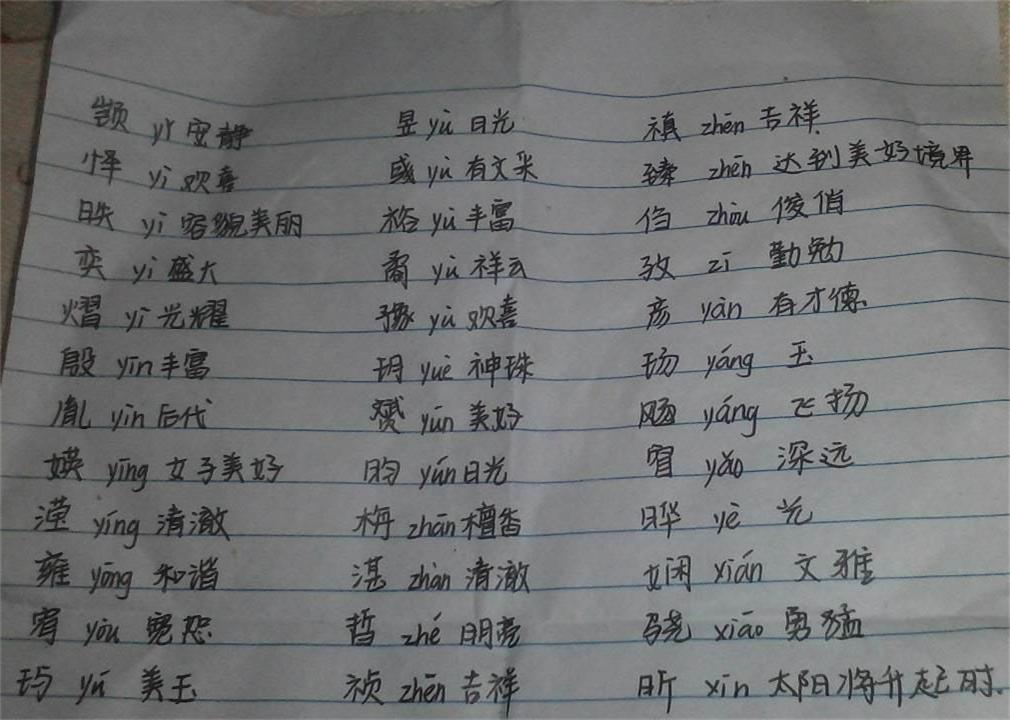 颛 yǐ 安静 昱 yù 日光 禛 zhēn 吉祥
怿 yì 欢喜 彧 yù 有文采 臻 zhēn 达到美好境界
昳 yì 容貌美丽 裕 yù 丰富 㑇 zhòu 俊俏
奕 yì 盛大 矞 yù 祥云 孜 zī 勤勉
熠 yì 光耀 豫 yù 欢喜 彦 yàn 有才德
殷 yīn 丰富 玥 yuè 神珠 玚 yáng 玉
胤 yìn 后代 赟 yūn 美好 飏 yáng 飞扬
媖 yīng 女子美好 昀 yún 日光 窅 yǎo 深远
滢 yíng 清澈 栴 zhān 檀香 晔 yè 光
雍 yōng 和谐 湛 zhàn 清澈 娴 xián 文雅
宥 yòu 宽恕 哲 zhé 明亮 骁 xiāo 勇猛
玙 yú 美玉 祯 zhēn 吉祥 昕 xīn 太阳将升起时.